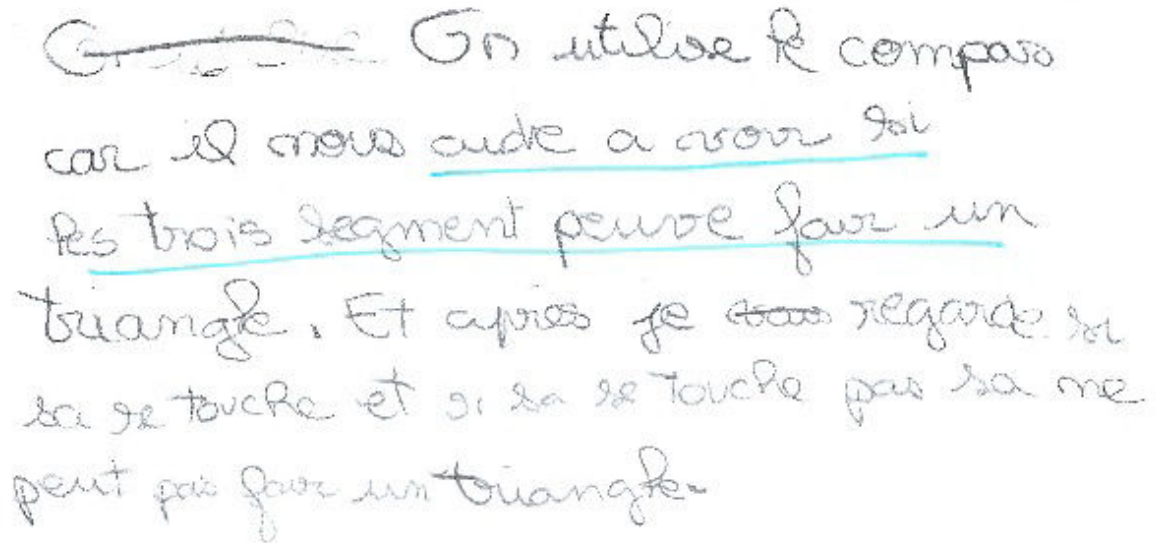 On utilise le compas
car il nous aide a voir si
les trois segment peuve fair un
triangle. Et après je vais regarde si
sa se touche et si sa se touche pas sa ne
peut pas faire un triangle.